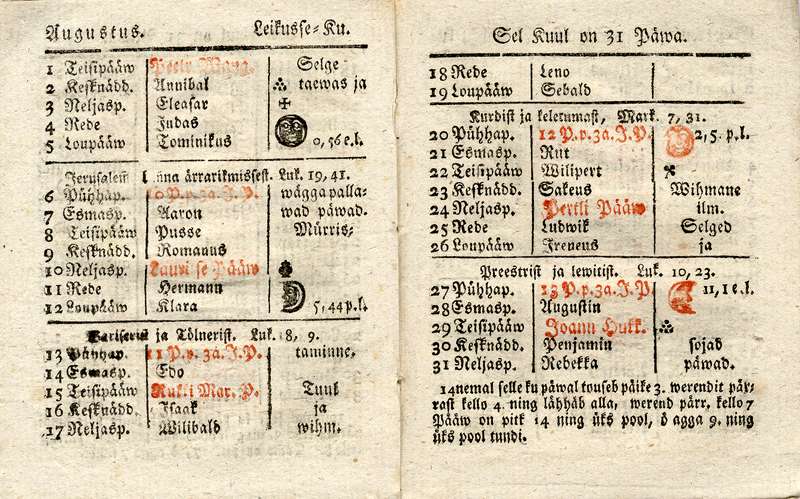 Augustus. Leikusse-Ku.
1 Teisipääw Peetr Wang. Selge
2 Kesknädd. Annibal taewas ja
3 Neljasp. Eleasar
4 Rede Judas
5 Loupääw Tominikus 0,56 e.l.
Jerusalem linna ärrarikmissest. Luk. 19, 41.
6 Pühhap. 10 P.p.3a.J.P. wägga palla-
7 Esmasp. Aaron wad päwad.
8 Teisipääw Pusse Mürris-
9 Kesknädd. Romanus
10 Neljasp. Lauri se Pääw
11 Rede Hermann
12 Loupääw Klara 5,44 p.l.
Wariserist ja Tölnerist. Luk. 18, 9.
13 Pühhap. 11 P.p.3a.J.P. taminne.
14 Esmasp. Edo
15 Teisipääw Rukki Mar. P. Tuul
16 Kesknädd. Isaak ja
17 Neljasp. Wilibald wihm.
Sel Kuul on 31 Päwa.
18 Rede Leno
19 Loupääw Sebald
Kurdist ja keletumast, Mark. 7, 31.
20 Pühhap. 12 P.p.3a.J.P. 2,5 p.l.
21 Esmasp. Rut
22 Teisipääw Wilipert
23 Kesknädd. Sakeus Wihmane
24 Neljasp. Pertli Pääw ilm.
25 Rede Ludwik Selged
26 Loupääw Ireneus ja
Preestrist ja lewitist. Luk. 10, 23.
27 Pühhap. 13 P.p.3a.J.P 11,1 e.l.
28 Esmasp. Augustin
29 Teisipääw Joann Hukk.
30 Kesknädd. Penjamin sojad
31 Neljasp. Rebekka päwad.
14nemal selle ku päwal touseb päike 3. werendit pär-
rast kello 4. ning lähhäb alla, werend pärr. kello 7
Pääw on pitk 14 ning üks pool, ö agga 9. ning
üks pool tundi.